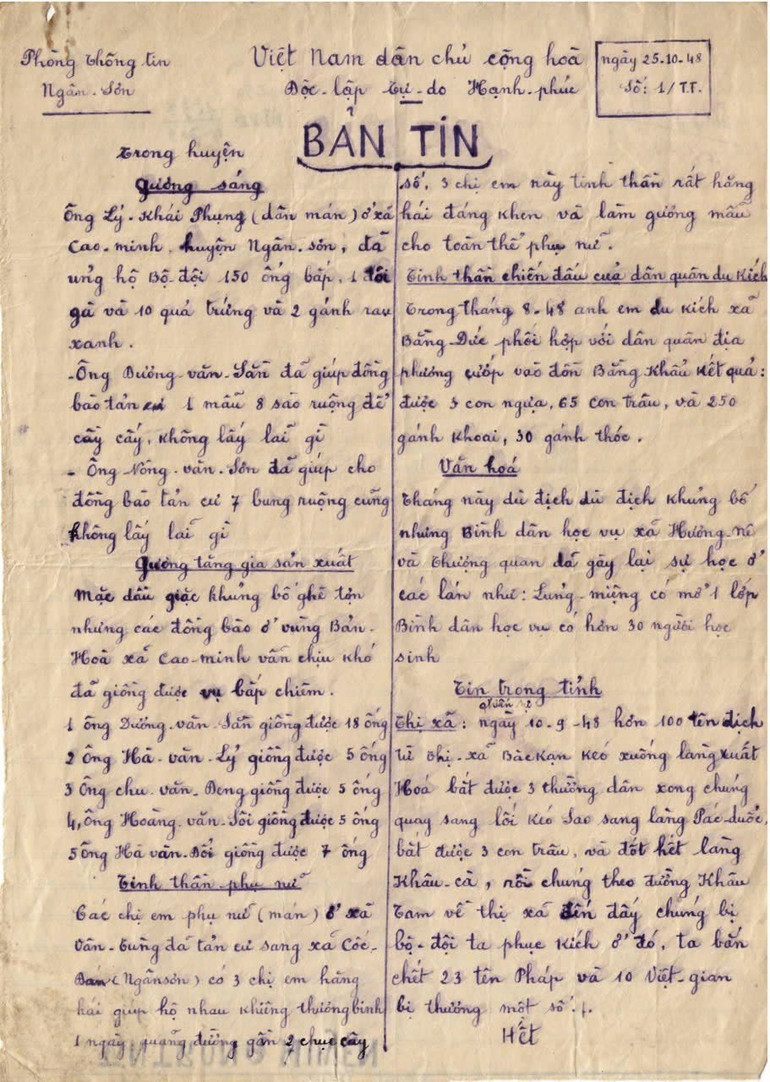 Phòng Thông tin
Ngân-Sơn
Việt Nam dân chủ cộng hoà
Độc-lập Tự-do Hạnh-phúc
ngày 25-10-48
Số: 1/T.T.
BẢN TIN
Trong huyện
Gương sáng
Ông Lý-Khái Phụng (dân mán) ở xã
Cao-minh, huyện Ngân-sơn, đã
ủng hộ Bộ-đội 150 ống bắp, 1 đôi
gà và 10 quả trứng và 2 gánh rau
xanh.
-Ông Dương-văn-Sần đã giúp đồng
bào tản cư 1 mẫu 8 sào ruộng để
cầy cấy, không lấy lãi gì
-Ông-Nông-văn-Sơn đã giúp cho
đồng bào tản cư 7 bung ruộng cũng
không lấy lãi gì
Gương tăng gia sản xuất
Mặc dầu giặc khủng bố ghê tợn
nhưng các đồng bào ở vùng Bản-
Hoà xã Cao-minh vẫn chịu khó
đã giồng được vụ bắp chiêm.
1 ông Dương-văn-Sần giồng được 18 ống
2 Ông Hà-văn-Lý giồng được 5 ống
3 Ông chu-văn-Deng giồng được 5 ống
4, Ông Hoàng-văn-Sôi giồng được 5 ống
5 Ông Hà văn-Đôi giồng được 7 ống
Tinh thần phụ nữ
Các chị em phụ nữ (mán) ở xã
Vân-Tùng đã tản cư sang xã Cốc-
Đán (Ngânsơn) có 3 chị em hăng
hái giúp hộ nhau khiêng thương binh
1 ngày quãng đường gần 2 chục cây
số, 3 chị em này tinh thần rất hăng
hái đáng khen và làm gương mẫu
cho toàn thể phụ nữ.
Tinh thần chiến đấu của dân quân du Kích
Trong tháng 8-48 anh em du kích xã
Bằng-Đức phối hợp với dân quân địa
phương cướp vào đồn Bằng Khẩu Kết quả:
được 3 con ngựa, 65 con trâu, và 250
gánh Khoai, 30 gánh thóc.
Văn hoá
Tháng này dù địch dù địch khủng bố
nhưng Bình dân học vụ xã Hương-nê
và Thượng quan đã gây lại sự học ở
các lán như: Lũng-miệng có mở 1 lớp
Bình dân học vụ có hơn 30 người học
sinh
Tin trong tỉnh
Thị xã: ngày 10-9-48 hơn 100 tên địch
từ Thị-xã BắcKạn Kéo xuống làng Xuất
Hoá bắt được 3 thường dân xong chúng
quay sang lối Kéo Sao sang làng Pác-duốc,
bắt được 3 con trâu, và đốt hết làng
Khâu-cà, rồi chúng theo đường Khâu
Tam về thị xã đến đấy chúng bị
bộ-đội ta phục Kích ở đó, ta bắn
chết 23 tên Pháp và 10 Việt-gian
bị thương một số.
Hết